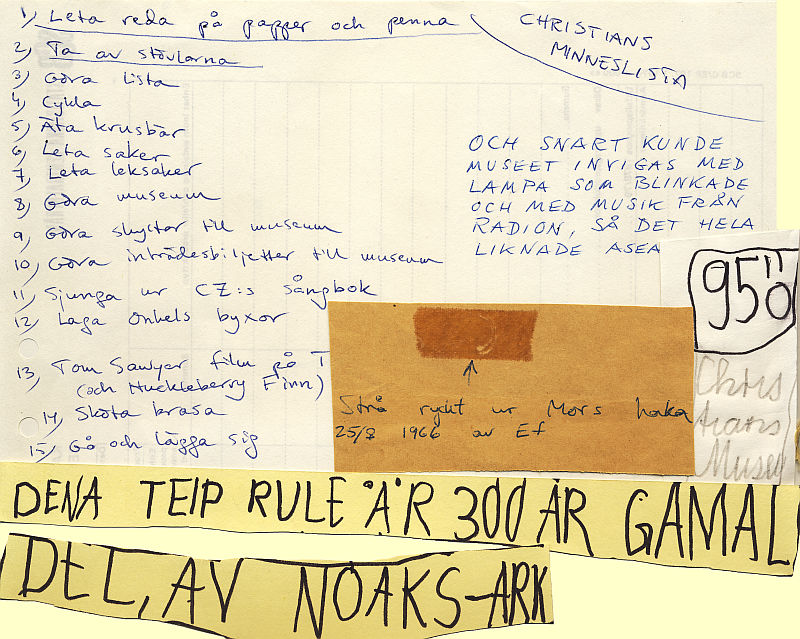 1) Leta reda på papper och penna
2) Ta av stövlarna
3) Göra lista
4) Cykla
5) Äta krusbär
6) Leta saker
7) Leta leksaker
8) Göra museum
9) Göra skyltar till museum
10) Göra inträdesbiljetter till museum
11) Sjunga ur CZ:s sångbok
12) Laga onkels byxor
13) Tom Sawyer film på T
(och Huckleberry Finn)
14) Sköta brasa
15) Gå och lägga sig
CHRISTIANS
MINNESLISTA
OCH SNART KUNDE
MUSEET INVIGAS MED
LAMPA SOM BLINKADE
OCH MED MUSIK FRÅN
RADION, SÅ DET HELA
LIKNADE ASEA
950
Chris
tians
Museu
Strå ryckt ur Mors haka
25/8 1966 av Ef
DENA TEIP RULE ÄR 300 ÅR GAMAL
DEL, AV NOAKS-ARK